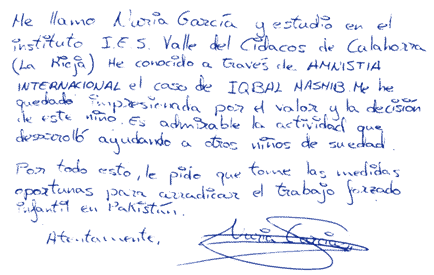 Me llamo Nuria García y estudio en el
instituto I.E.S. Valle del Cidacos de Calahorra
(La Rioja) He conocido a través de AMNISTIA
INTERNACIONAL el caso de IQBAL MASHIB. Me he
quedado impresionada por el valor y la decisión
de este niño. Es admirable la actividad que
desarrolló ayudando a otros niños de su edad.
Por todo esto, le pido que tome las medidas
oportunas para arradicar el trabajo forzado
infantil en Pakistán.
Atentamente,
Nuria García